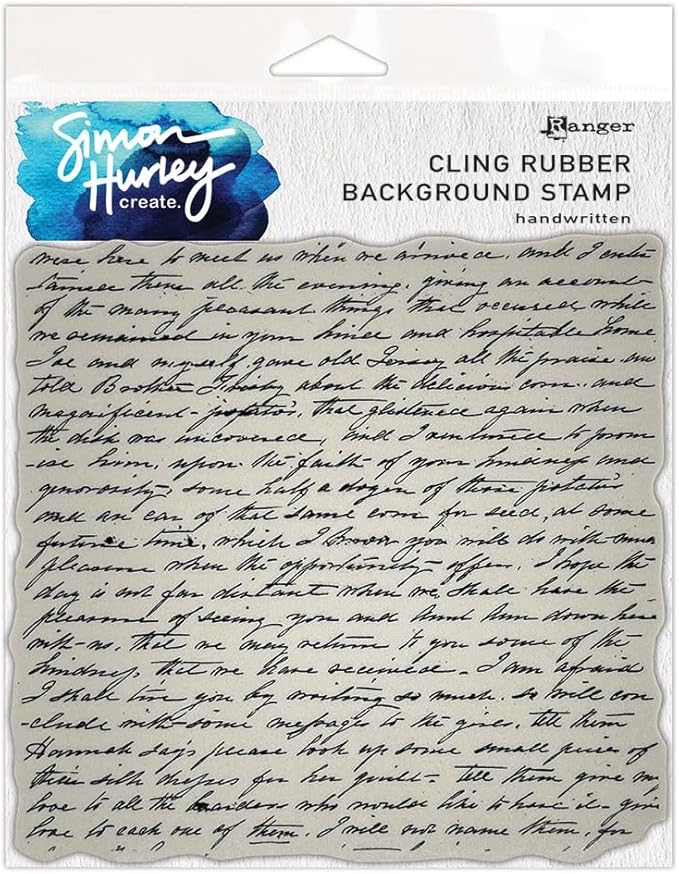 Simon
Hurley
create.
Ranger
CLING RUBBER
BACKGROUND STAMP
handwritten
were here to meet us when we arrived, and I enter
tained them all the evening, giving an account
of the many pleasant things that occured while
we remained in your kind and hospitable home
and myself gave old Jersey all the praise and
told Brother about the delicious corn and
magnificent potatos, that glistened again when
the dish was uncovered, and I ventured to prom
-ise him, upon the faith of your kindness and
generosity, some half a dozen of those potatos
and an ear of that same corn for seed, at some
future time, which I know you will do with much
pleasure when the opportunity offers. I hope the
day is not far distant when we shall have the
pleasure of seeing you and Ann down here
with us, that we may return to you some of the
kindness that we have received. I am afraid
I shall tire you by writing so much. so will con
-clude with some messages to the girls, tell them
Hannah says please look up some small pieces of
their silk dresses for her quilt - tell them give my
love to all the who would like to have it - give
love to each one of them. I will not name them, for